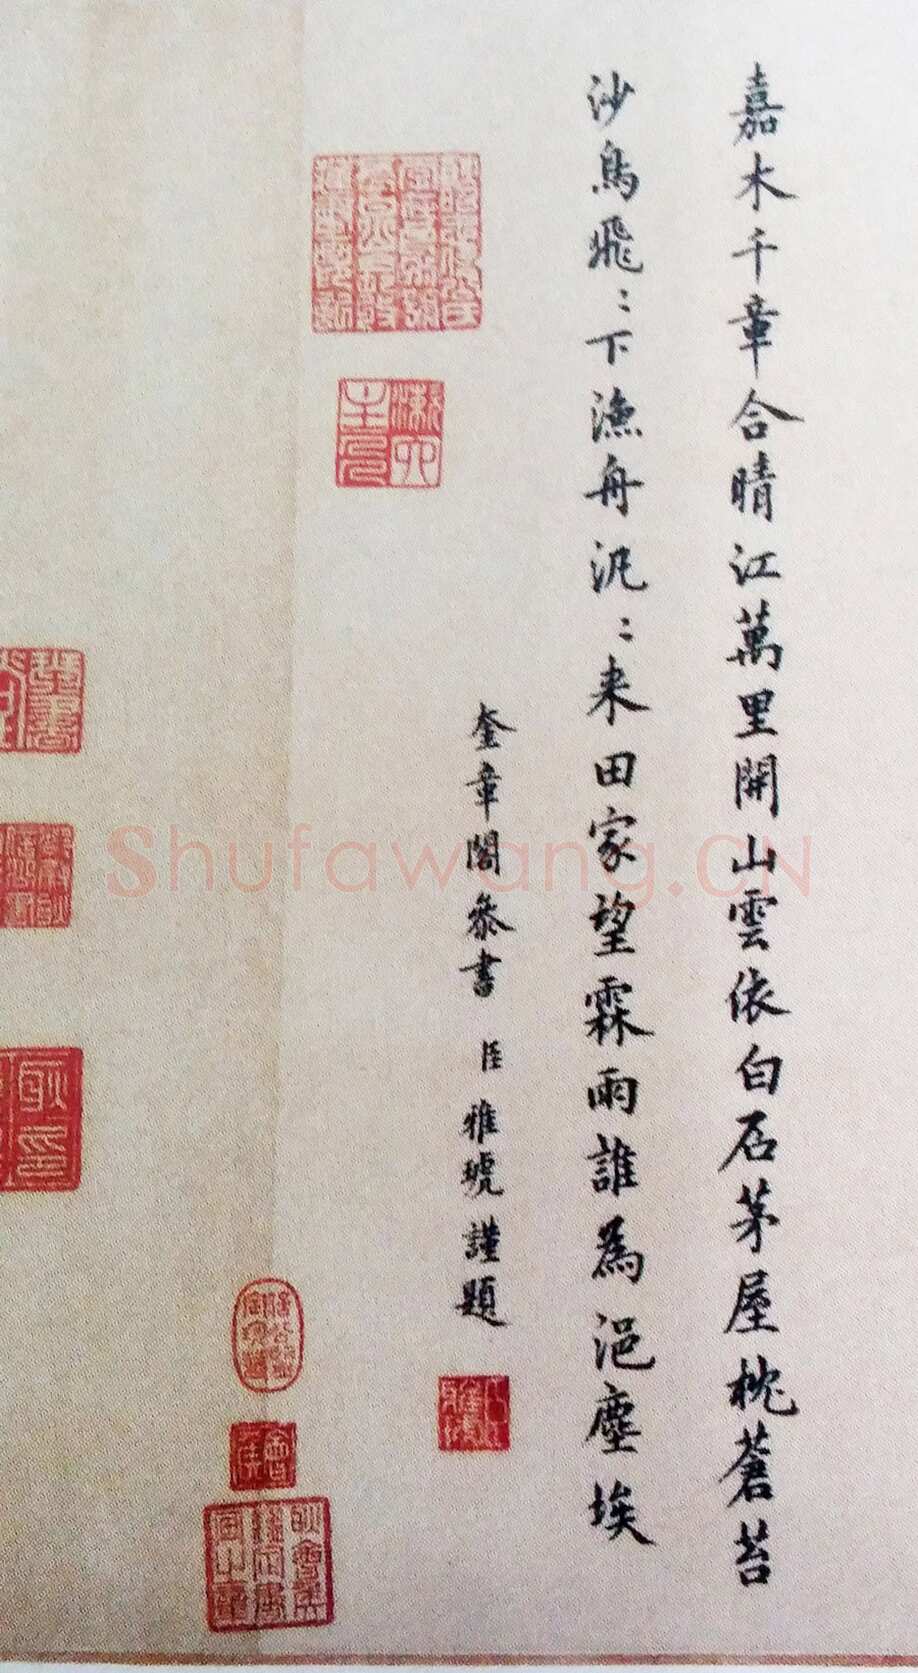 嘉木千章合晴江萬里開山雲依白石茅屋枕蒼苔
沙鳥飛〻下漁舟汎〻来田家望霖雨誰為浥塵埃
奎章閣叅書臣雅琥謹題
Shufawang.CN